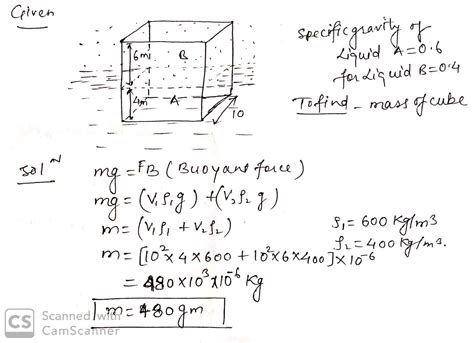 Given
6m B
4m A
10
Specific gravity of
Liquid A = 0.6
for Liquid B = 0.4
To find - mass of cube
Solⁿ
mg = FB (Buoyant force)
mg = (V₁ρ₁g) + (V₂ρ₂g)
m = (V₁ρ₁ + V₂ρ₂)
ρ₁ = 600 kg/m3
m = [10² × 4 × 600 + 10² × 6 × 400] × 10⁻⁶
ρ₂ = 400 kg/m³.
= 480 × 10³ × 10⁻⁶ kg
m = 480 gm
CS Scanned with
CamScanner